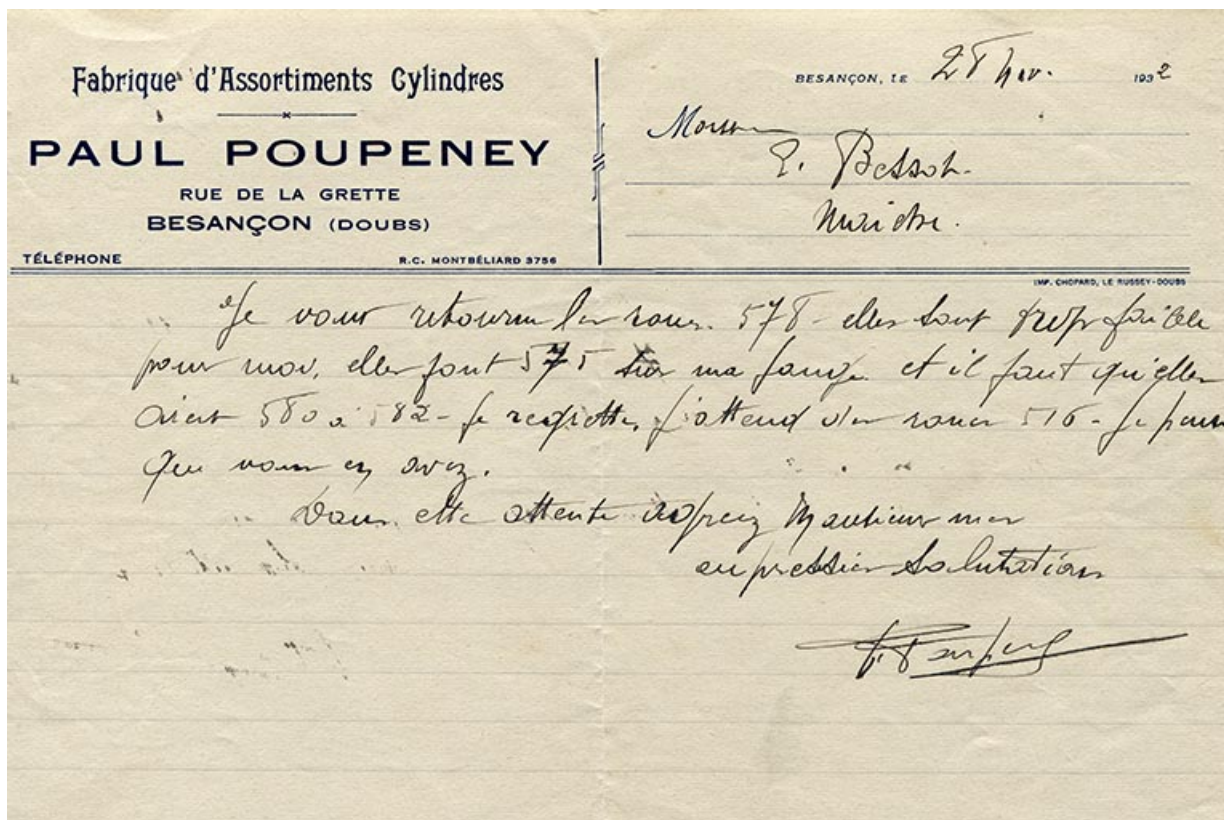 Fabrique d'Assortiments Cylindres
PAUL POUPENEY
RUE DE LA GRETTE
BESANÇON (DOUBS)
TÉLÉPHONE
R.C. MONTBÉLIARD 3756
BESANÇON, LE 28 Nov. 1932
Monsieur
E. Besson.
Maiche.
IMP. CHOPARD, LE RUSSEY-DOUBS
Je vous retourne les roues 578 - elles sont trop faibles
pour moi, elles font 575 sur ma jauge et il faut qu'elles
aient 580 à 582 - Je regrette, j'attend des roues 516 - Je pense
que vous en avez.
Dans cette attente Monsieur mes
salutations